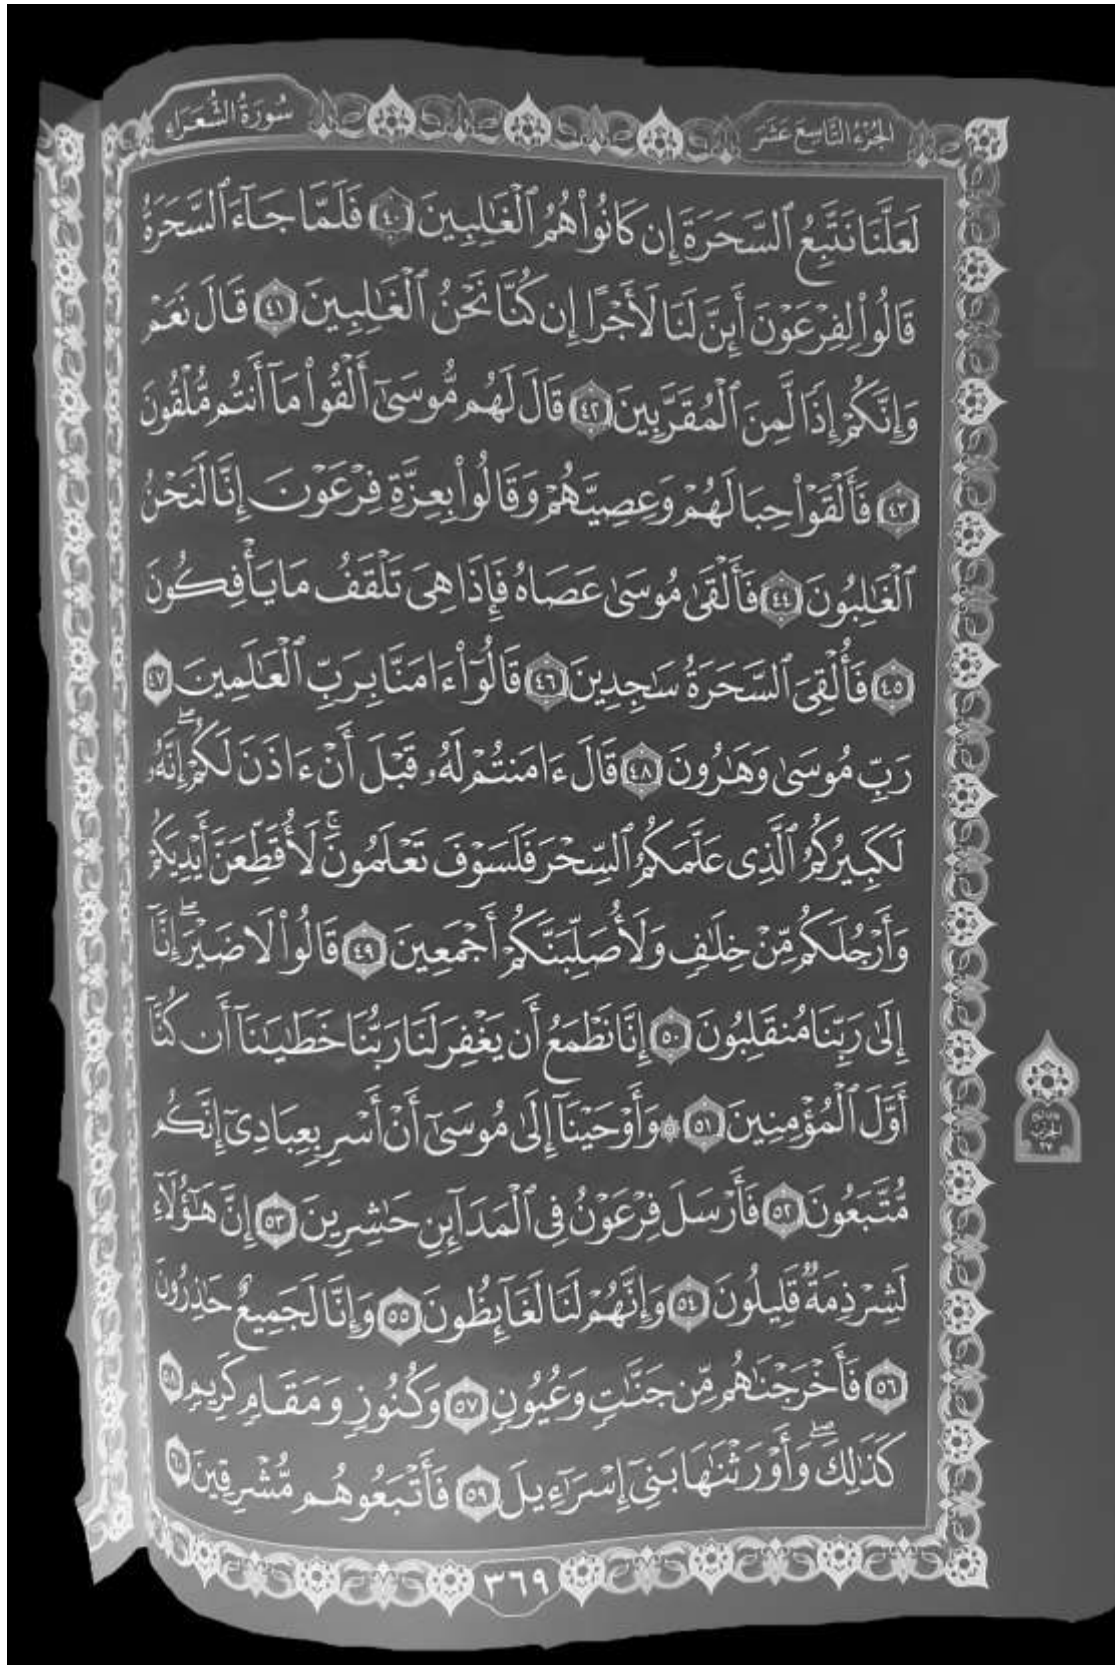 الجزء التاسع عشر
سورة الشعراء
لَعَلَّنَا نَتَّبِعُ ٱلسَّحَرَةَ إِن كَانُوا۟ هُمُ ٱلْغَـٰلِبِينَ ٤٠ فَلَمَّا جَآءَ ٱلسَّحَرَةُ
قَالُوا۟ لِفِرْعَوْنَ أَئِنَّ لَنَا لَأَجْرًا إِن كُنَّا نَحْنُ ٱلْغَـٰلِبِينَ ٤١ قَالَ نَعَمْ
وَإِنَّكُمْ إِذًا لَّمِنَ ٱلْمُقَرَّبِينَ ٤٢ قَالَ لَهُم مُّوسَىٰٓ أَلْقُوا۟ مَآ أَنتُم مُّلْقُونَ
٤٣ فَأَلْقَوْا۟ حِبَالَهُمْ وَعِصِيَّهُمْ وَقَالُوا۟ بِعِزَّةِ فِرْعَوْنَ إِنَّا لَنَحْنُ
ٱلْغَـٰلِبُونَ ٤٤ فَأَلْقَىٰ مُوسَىٰ عَصَاهُ فَإِذَا هِىَ تَلْقَفُ مَا يَأْفِكُونَ
٤٥ فَأُلْقِىَ ٱلسَّحَرَةُ سَـٰجِدِينَ ٤٦ قَالُوٓا۟ ءَامَنَّا بِرَبِّ ٱلْعَـٰلَمِينَ ٤٧
رَبِّ مُوسَىٰ وَهَـٰرُونَ ٤٨ قَالَ ءَامَنتُمْ لَهُۥ قَبْلَ أَنْ ءَاذَنَ لَكُمْ ۖ إِنَّهُۥ
لَكَبِيرُكُمُ ٱلَّذِى عَلَّمَكُمُ ٱلسِّحْرَ فَلَسَوْفَ تَعْلَمُونَ ۚ لَأُقَطِّعَنَّ أَيْدِيَكُمْ
وَأَرْجُلَكُم مِّنْ خِلَـٰفٍ وَلَأُصَلِّبَنَّكُمْ أَجْمَعِينَ ٤٩ قَالُوا۟ لَا ضَيْرَ ۖ إِنَّآ
إِلَىٰ رَبِّنَا مُنقَلِبُونَ ٥٠ إِنَّا نَطْمَعُ أَن يَغْفِرَ لَنَا رَبُّنَا خَطَـٰيَـٰنَآ أَن كُنَّآ
أَوَّلَ ٱلْمُؤْمِنِينَ ٥١ ۞ وَأَوْحَيْنَآ إِلَىٰ مُوسَىٰٓ أَنْ أَسْرِ بِعِبَادِىٓ إِنَّكُم
مُّتَّبَعُونَ ٥٢ فَأَرْسَلَ فِرْعَوْنُ فِى ٱلْمَدَآئِنِ حَـٰشِرِينَ ٥٣ إِنَّ هَـٰٓؤُلَآءِ
لَشِرْذِمَةٌ قَلِيلُونَ ٥٤ وَإِنَّهُمْ لَنَا لَغَآئِظُونَ ٥٥ وَإِنَّا لَجَمِيعٌ حَـٰذِرُونَ
٥٦ فَأَخْرَجْنَـٰهُم مِّن جَنَّـٰتٍ وَعُيُونٍ ٥٧ وَكُنُوزٍ وَمَقَامٍ كَرِيمٍ ٥٨
كَذَٰلِكَ ۖ وَأَوْرَثْنَـٰهَا بَنِىٓ إِسْرَٰٓءِيلَ ٥٩ فَأَتْبَعُوهُم مُّشْرِقِينَ ٦٠
٣٦٩